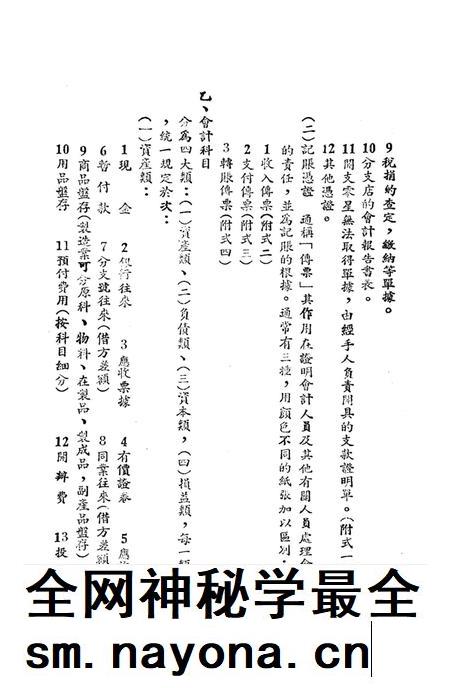 9 稅捐的查定，繳納等單據。
10分支店的會計報告書表。
11開支零星無法取得單據，由經手人負責開具的支款證明單。(附式一
12其他憑證。
(二)記賬憑證　通稱「傳票」其作用在證明會計人員及其他有關人員處理
的責任，並為記賬的根據。通常有三種，用顏色不同的紙張加以區別，
1收入傳票(附式二)
2支付傳票(附式三)
3轉賬傳票(附式四)
乙、會計科目
分為四大類：(一)資產類、(二)負債類、(三)資本類，(四)損益類，每一
，統一規定於次：
(一)資產類：
1現　金　2銀行往來　3應收票據　4有價證券　5應
6暫付款　7分支號往來(借方差額)　8同業往來(借方差額
9商品盤存(製造業可分原料、物料、在製品、製成品，副產品盤存)
10用品盤存　11預付費用(按科目細分)　12開辦費　13投
全网神秘学最全
sm.nayona.cn